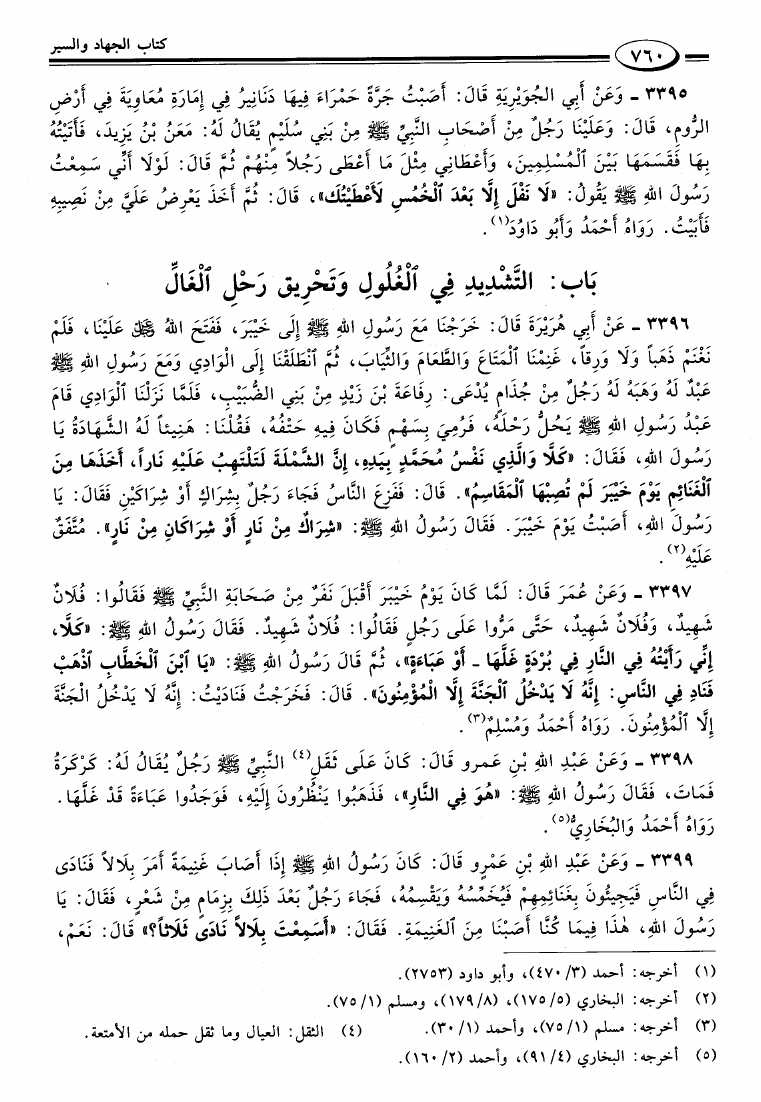 كتاب الجهاد والسير
٧٦٠
٣٣٩٥ ـ وَعَنْ أَبِي الجُوَيْرِيَةِ قَالَ: أَصَبْتُ جَرَّةً حَمْرَاءَ فِيهَا دَنَانِيرُ فِي إِمَارَةِ مُعَاوِيَةَ فِي أَرْضِ
الرُّومِ، قَالَ: وَعَلَيْنَا رَجُلٌ مِنْ أَصْحَابِ النَّبِيِّ ﷺ مِنْ بَنِي سُلَيْمٍ يُقَالُ لَهُ: مَعَنُ بْنُ يَزِيدَ، فَأَتَيْتُهُ
بِهَا فَقَسَمَهَا بَيْنَ ٱلْمُسْلِمِينَ، وَأَعْطَانِي مِثْلَ مَا أَعْطَى رَجُلاً مِنْهُمْ ثُمَّ قَالَ: لَوْلَا أَنِّي سَمِعْتُ
رَسُولَ اللهِ ﷺ يَقُولُ: «لَا نَفْلَ إِلَّا بَعْدَ ٱلْخُمُسِ لَأَعْطَيْتُكَ»، قَالَ: ثُمَّ أَخَذَ يَعْرِضُ عَلَيَّ مِنْ نَصِيبِهِ
فَأَبَيْتُ. رَوَاهُ أَحْمَدُ وَأَبُو دَاوُدَ(١).
بَاب: التَّشْدِيدِ فِي ٱلْغُلُولِ وَتَحْرِيقِ رَحْلِ ٱلْغَالِّ
٣٣٩٦ ـ عَنْ أَبِي هُرَيْرَةَ قَالَ: خَرَجْنَا مَعَ رَسُولِ اللهِ ﷺ إِلَى خَيْبَرَ، فَفَتَحَ اللهُ ﷿ عَلَيْنَا، فَلَمْ
نَغْنَمْ ذَهَباً وَلَا وَرِقاً، غَنِمْنَا ٱلْمَتَاعَ وَالطَّعَامَ وَالثِّيَابَ، ثُمَّ ٱنْطَلَقْنَا إِلَى ٱلْوَادِي وَمَعَ رَسُولِ اللهِ ﷺ
عَبْدٌ لَهُ وَهَبَهُ لَهُ رَجُلٌ مِنْ جُذَامٍ يُدْعَى: رِفَاعَةَ بْنَ زَيْدٍ مِنْ بَنِي الضُّبَيْبِ، فَلَمَّا نَزَلْنَا ٱلْوَادِي قَامَ
عَبْدُ رَسُولِ اللهِ ﷺ يَحُلُّ رَحْلَهُ، فَرُمِيَ بِسَهْمٍ فَكَانَ فِيهِ حَتْفُهُ، فَقُلْنَا: هَنِيئاً لَهُ الشَّهَادَةُ يَا
رَسُولَ اللهِ، فَقَالَ: «كَلَّا وَالَّذِي نَفْسُ مُحَمَّدٍ بِيَدِهِ، إِنَّ الشَّمْلَةَ لَتَلْتَهِبُ عَلَيْهِ نَاراً، أَخَذَهَا مِنَ
ٱلْغَنَائِمِ يَوْمَ خَيْبَرَ لَمْ تُصِبْهَا ٱلْمَقَاسِمُ». قَالَ: فَفَزِعَ النَّاسُ فَجَاءَ رَجُلٌ بِشِرَاكٍ أَوْ شِرَاكَيْنِ فَقَالَ: يَا
رَسُولَ اللهِ، أَصَبْتُ يَوْمَ خَيْبَرَ. فَقَالَ رَسُولُ اللهِ ﷺ: «شِرَاكٌ مِنْ نَارٍ أَوْ شِرَاكَانِ مِنْ نَارٍ». مُتَّفَقٌ
عَلَيْهِ(٢).
٣٣٩٧ ـ وَعَنْ عُمَرَ قَالَ: لَمَّا كَانَ يَوْمُ خَيْبَرَ أَقْبَلَ نَفَرٌ مِنْ صَحَابَةِ النَّبِيِّ ﷺ فَقَالُوا: فُلَانٌ
شَهِيدٌ، وَفُلَانٌ شَهِيدٌ، حَتَّى مَرُّوا عَلَى رَجُلٍ فَقَالُوا: فُلَانٌ شَهِيدٌ. فَقَالَ رَسُولُ اللهِ ﷺ: «كَلَّا،
إِنِّي رَأَيْتُهُ فِي النَّارِ فِي بُرْدَةٍ غَلَّهَا ـ أَوْ عَبَاءَةٍ»، ثُمَّ قَالَ رَسُولُ اللهِ ﷺ: «يَا ٱبْنَ ٱلْخَطَّابِ ٱذْهَبْ
فَنَادِ فِي النَّاسِ: إِنَّهُ لَا يَدْخُلُ ٱلْجَنَّةَ إِلَّا ٱلْمُؤْمِنُونَ». قَالَ: فَخَرَجْتُ فَنَادَيْتُ: إِنَّهُ لَا يَدْخُلُ ٱلْجَنَّةَ
إِلَّا ٱلْمُؤْمِنُونَ. رَوَاهُ أَحْمَدُ وَمُسْلِمٌ(٣).
٣٣٩٨ ـ وَعَنْ عَبْدِ اللهِ بْنِ عَمرو قَالَ: كَانَ عَلَى ثَقَلِ(٤) النَّبِيِّ ﷺ رَجُلٌ يُقَالُ لَهُ: كَرْكَرَةُ
فَمَاتَ، فَقَالَ رَسُولُ اللهِ ﷺ: «هُوَ فِي النَّارِ»، فَذَهَبُوا يَنْظُرُونَ إِلَيْهِ، فَوَجَدُوا عَبَاءَةً قَدْ غَلَّهَا.
رَوَاهُ أَحْمَدُ وَالبُخَارِيُّ(٥).
٣٣٩٩ ـ وَعَنْ عَبْدِ اللهِ بْنِ عَمْرٍو قَالَ: كَانَ رَسُولُ اللهِ ﷺ إِذَا أَصَابَ غَنِيمَةً أَمَرَ بِلَالاً فَنَادَى
فِي النَّاسِ فَيَجِيئُونَ بِغَنَائِمِهِمْ فَيُخَمِّسُهُ وَيَقْسِمُهُ، فَجَاءَ رَجُلٌ بَعْدَ ذَلِكَ بِزِمَامٍ مِنْ شَعْرٍ، فَقَالَ: يَا
رَسُولَ اللهِ، هٰذَا فِيمَا كُنَّا أَصَبْنَا مِنَ ٱلْغَنِيمَةِ. فَقَالَ: «أَسَمِعْتَ بِلَالاً نَادَى ثَلَاثاً؟» قَالَ: نَعَمْ،
(١) أخرجه: أحمد (٣/ ٤٧٠)، وأبو داود (٢٧٥٣).
(٢) أخرجه: البخاري (٥/ ١٧٥)، (٨/ ١٧٩)، ومسلم (١/ ٧٥).
(٣) أخرجه: مسلم (١/ ٧٥)، وأحمد (١/ ٣٠). (٤) الثقل: العيال وما ثقل حمله من الأمتعة.
(٥) أخرجه: البخاري (٤/ ٩١)، وأحمد (٢/ ١٦٠).